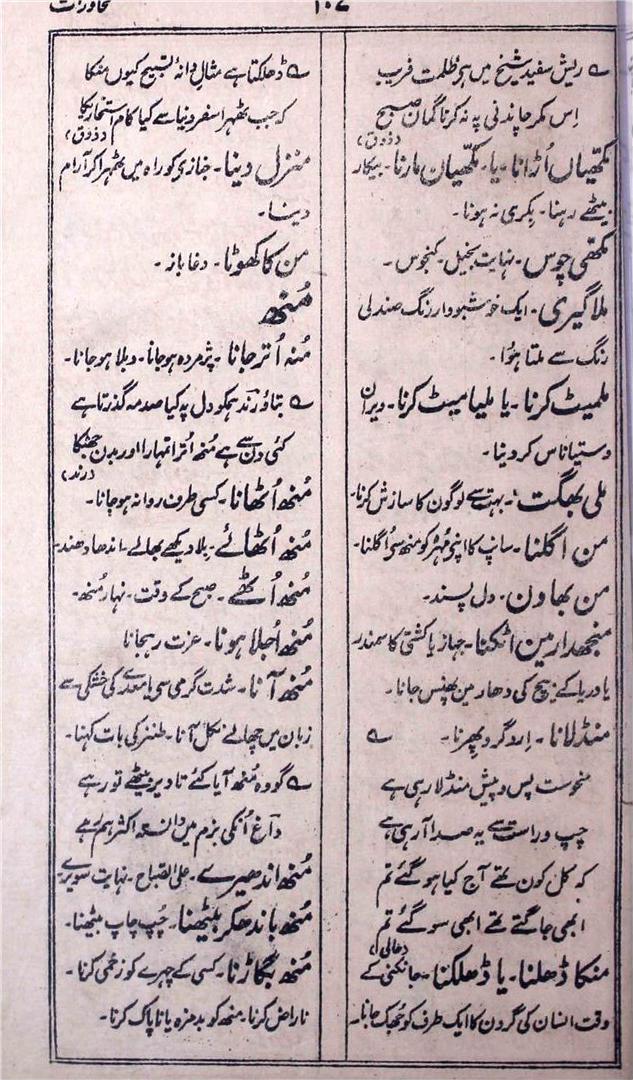 ۱۰۷
محاورات
؎ ریش سفید شیخ میں ہے ظلمت فریب
اِس مکر چاندنی پہ نہ کرنا گمان صبح
(ذوق)
مکھیاں اُڑانا۔ یا۔ مکھیان مارنا۔ بیکار
بیٹھے رہنا۔ بکری نہ ہونا۔
مکھی چوس۔ نہایت بخیل۔ کنجوس۔
ملاگیری۔ ایک خوشبودار رنگ صندلی
رنگ سے ملتا ہؤا۔
ملمیٹ کرنا۔ یا ملیا میٹ کرنا۔ ویران
وستیاناس کردینا۔
ملی بھگت۔ بہت سے لوگون کا سازش کرنا۔
من اگلنا۔ سانپ کا اپنی مُہرُ کو منھ سے اُگلنا۔
من بھاون۔ دل پسند۔
منجھدار مین اٹکنا۔ جہاز یا کشتی کا سمندر
یا دریا کے بیچ کی دھار مین پھنس جانا۔
منڈلانا۔ اِرد گرد پھرنا۔ ؎
نحوست پس و پیش منڈلا رہی ہے
چپ و راست سے یہ صدا آرہی ہے
کہ کل کون تھے آج کیا ہو گئے تم
ابھی جاگتے تھے ابھی سو گئے تم
(حالی)
منکا ڈھلنا۔ یا ڈھلکنا۔ جانکنی کے
وقت انسان کی گردن کا ایک طرف کو جُھک جانا۔
؎ ڈھلکتا ہے مثالِ دانۂ تسبیح کیوں منکا
کہ جب ٹھہرا سفر دنیا سے کیا کام استخاریکا
(ذوق)
منزل دینا۔ جنازی کو راہ میں ٹھہرا کر آرام
دینا۔
من کا کھوٹا۔ دغا باز۔
مُنھ
مُنہ اُتر جانا۔ پژمردہ ہوجانا۔ دبلا ہوجانا۔
؎ بتاؤ رند ہمکو دل پہ کیا صدمہ گذرتا ہے
کئی دن سے ہے مُنھ اُترا تمہارا اور بدن جھٹکا
(رند)
مُنھ اُٹھانا۔ کسی طرف روانہ ہوجانا۔
مُنھ اُٹھائے۔ بلا دیکھے بھالے۔ اندھا دھند۔
مُنھ اُٹھے۔ صبح کے وقت۔ نہار مُنھ۔
مُنھ اُجلا ہونا۔ عزت رہجانا
مُنھ آنا۔ شدت گرمی سی یا معدے کی خشکی سے
زبان میں چھالے نکل آنا۔ طنز کی بات کہنا۔
؎ گو وہ مُنھ آیا کئے تا دیر بیٹھے تو رہے
داغ اُنکی بزم میں دانستہ اکثر ہم رہے
مُنھ اندھیرے۔ علیٰ الصباح۔ نہایت سویرے۔
مُنھ باندھکر بیٹھنا۔ چُپ چاپ بیٹھنا۔
مُنھ بگاڑنا۔ کسی کے چہرے کو زخمی کرنا۔
ناراض کرنا۔ منھ کو بدمزہ یا ناپاک کرنا۔